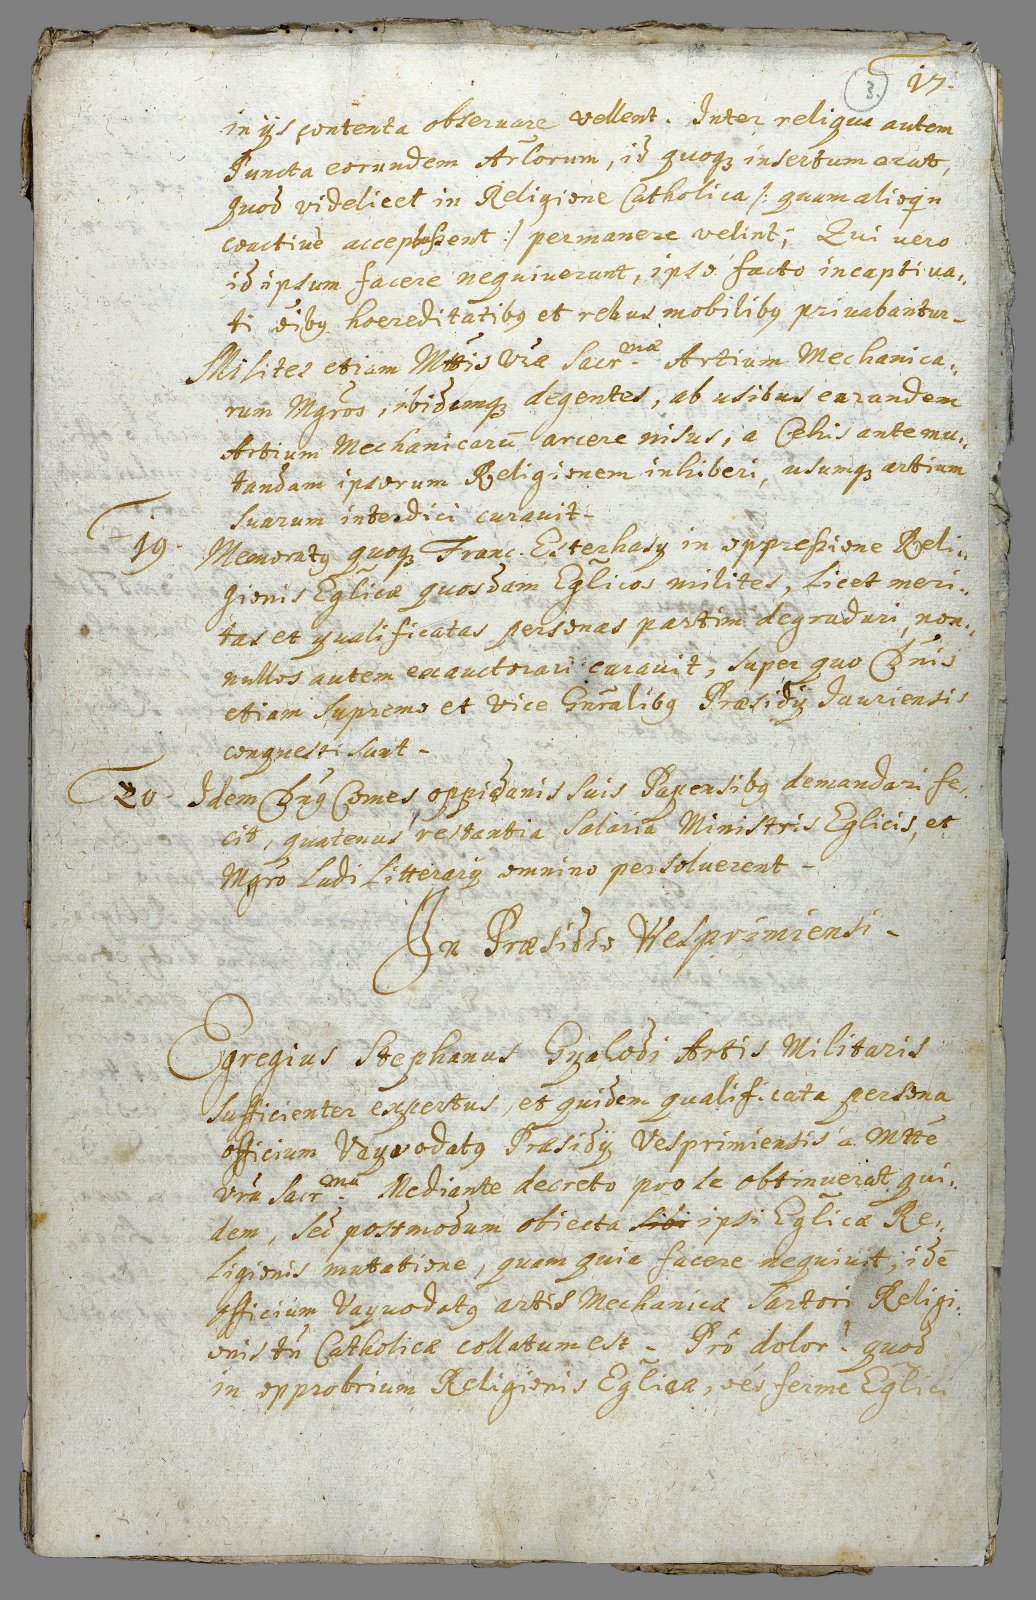 3. 17.
in ijs contenta obseruare vellent. Inter reliqua autem
Puncta eorundem Arlorum, id quoq; insertum erat,
quod videlicet in Religione Catholica /: quam alioqn
coactiue acceptassent :/ permanere velint; Qui vero
id ipsum facere nequiuerunt, ipso facto incaptiua„
ti oibq hoereditatibq et rebus mobilibq priuabantur_
Milites etiam Mttis Vræ Sacr mæ Artium Mechanica„
rum Mgros, ibidemq; degentes, ab usibus earundem
Artium Mechanicarū arcere nisus, a Cehis ante mu„
tandam ipsorum Religionem inhiberi, usumq; artium
suarum interdici curauit_
19. Memoratq quoq; Franc. Esterhasÿ in oppressione Reli„
gionis Eglicæ quosdam Eglicos milites, licet meri„
tas et qualificatas personas partim degradari, non„
nullos autem exauctorari curauit, super quo Dnis
etiam Supremo et Vice Gnralibq Præsidÿ Jauriensis
conquesti sunt_
20. Idem Dnq Comes, oppidanis suis Papensibq demandari fe„
cit, quatenus restantia Salaria Ministris Eglicis, et
Mgro Ludi Litterarÿ omnino persoluerent_
In Præsidio Wesprimiensi_
Egregius Stephanus Gyalodi Artis Militaris
sufficienter expertus, et quidem qualificata persona
officium Vayuodatq Præsidÿ Vesprimiensis a Mtte
Vra Sacr ma Mediante decreto pro se obtinuerat qui„
dem, sed postmodum obiecta sibi ipsi Eglicæ Re„
ligionis mutatione, quam quia facere nequiuit, idē
officium Vayuodatq artis Mechanicæ Sartori Religi„
onis tn Catholicæ collatum est_ Prô dolor! quod
in opprobrium Religionis Eglicæ, eô ferme Eglici